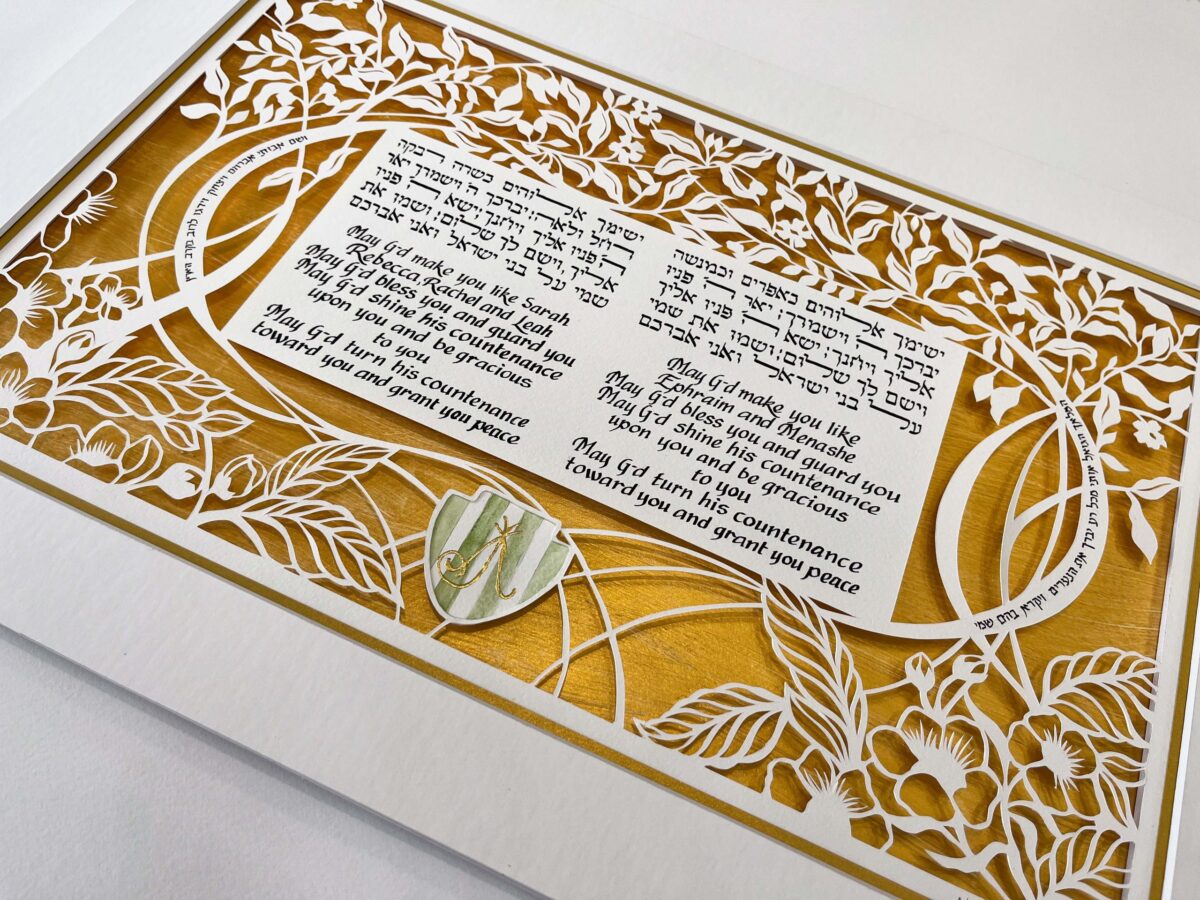 ישימך אלוהים כאפרים וכמינשה
יברכך ה׳ וישמורך; יאר ה׳ פניו
אליך ויחנך; ישא ה׳ פניו אליך
וישם לך שלום; ושמו את שמי
על בני ישראל ואני אברכם
May G-d make you like
Ephraim and Menashe
May G-d bless you and guard you
May G-d shine his countenance
upon you and be gracious
to you
May G-d turn his countenance
toward you and grant you peace
ישימך אלוהים כשרה רבקה
רחל ולאה; יברכך ה׳ וישמורך יאר
ה׳ פניו אליך ויחנך ישא ה׳ פניו
אליך וישם לך שלום; ושמו את
שמי על בני ישראל ואני אברכם
May G-d make you like Sarah
Rebecca, Rachel and Leah
May G-d bless you and guard you
May G-d shine his countenance
upon you and be gracious
to you
May G-d turn his countenance
toward you and grant you peace
המלאך הגואל אותי מכל רע יברך את הנערים ויקרא בהם שמי
ושם אבותי אברהם ויצחק וידגו לרוב בקרב הארץ